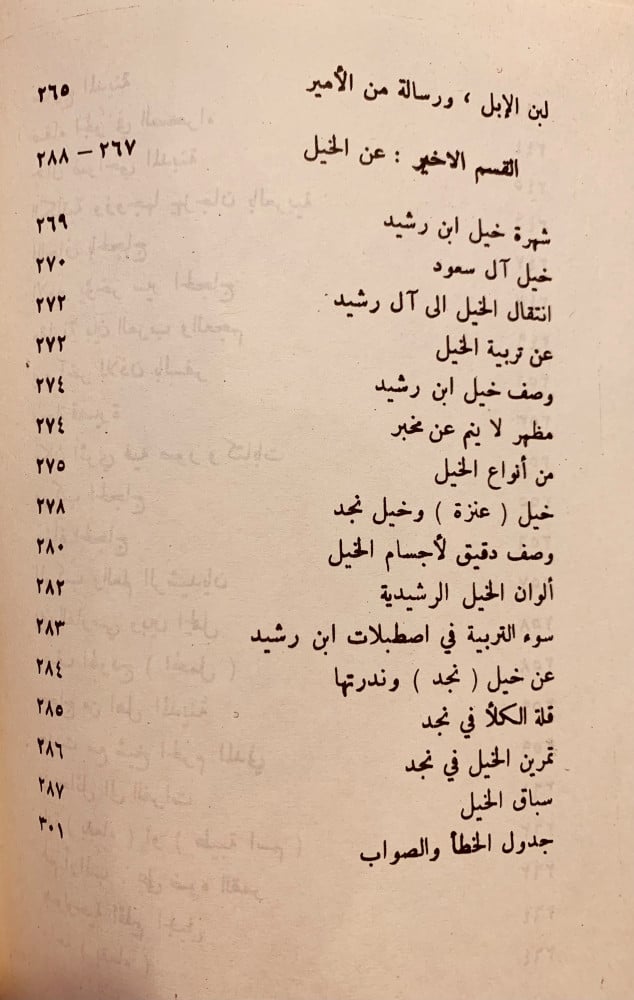 لبن الإبل ، ورسالة من الأمير ٢٦٥
القسم الاخير : عن الخيل ٢٦٧ – ٢٨٨
شهرة خيل ابن رشيد ٢٦٩
خيل آل سعود ٢٧٠
انتقال الخيل الى آل رشيد ٢٧٢
عن تربية الخيل ٢٧٢
وصف خيل ابن رشيد ٢٧٤
مظهر لا ينم عن مخبر ٢٧٤
من أنواع الخيل ٢٧٥
خيل ( عنزة ) وخيل نجد ٢٧٨
وصف دقيق لأجسام الخيل ٢٨٠
ألوان الخيل الرشيدية ٢٨٢
سوء التربية في اصطبلات ابن رشيد ٢٨٣
عن خيل ( نجد ) وندرتها ٢٨٤
قلة الكلأ في نجد ٢٨٥
تمرين الخيل في نجد ٢٨٦
سباق الخيل ٢٨٧
جدول الخطأ والصواب ٣٠١